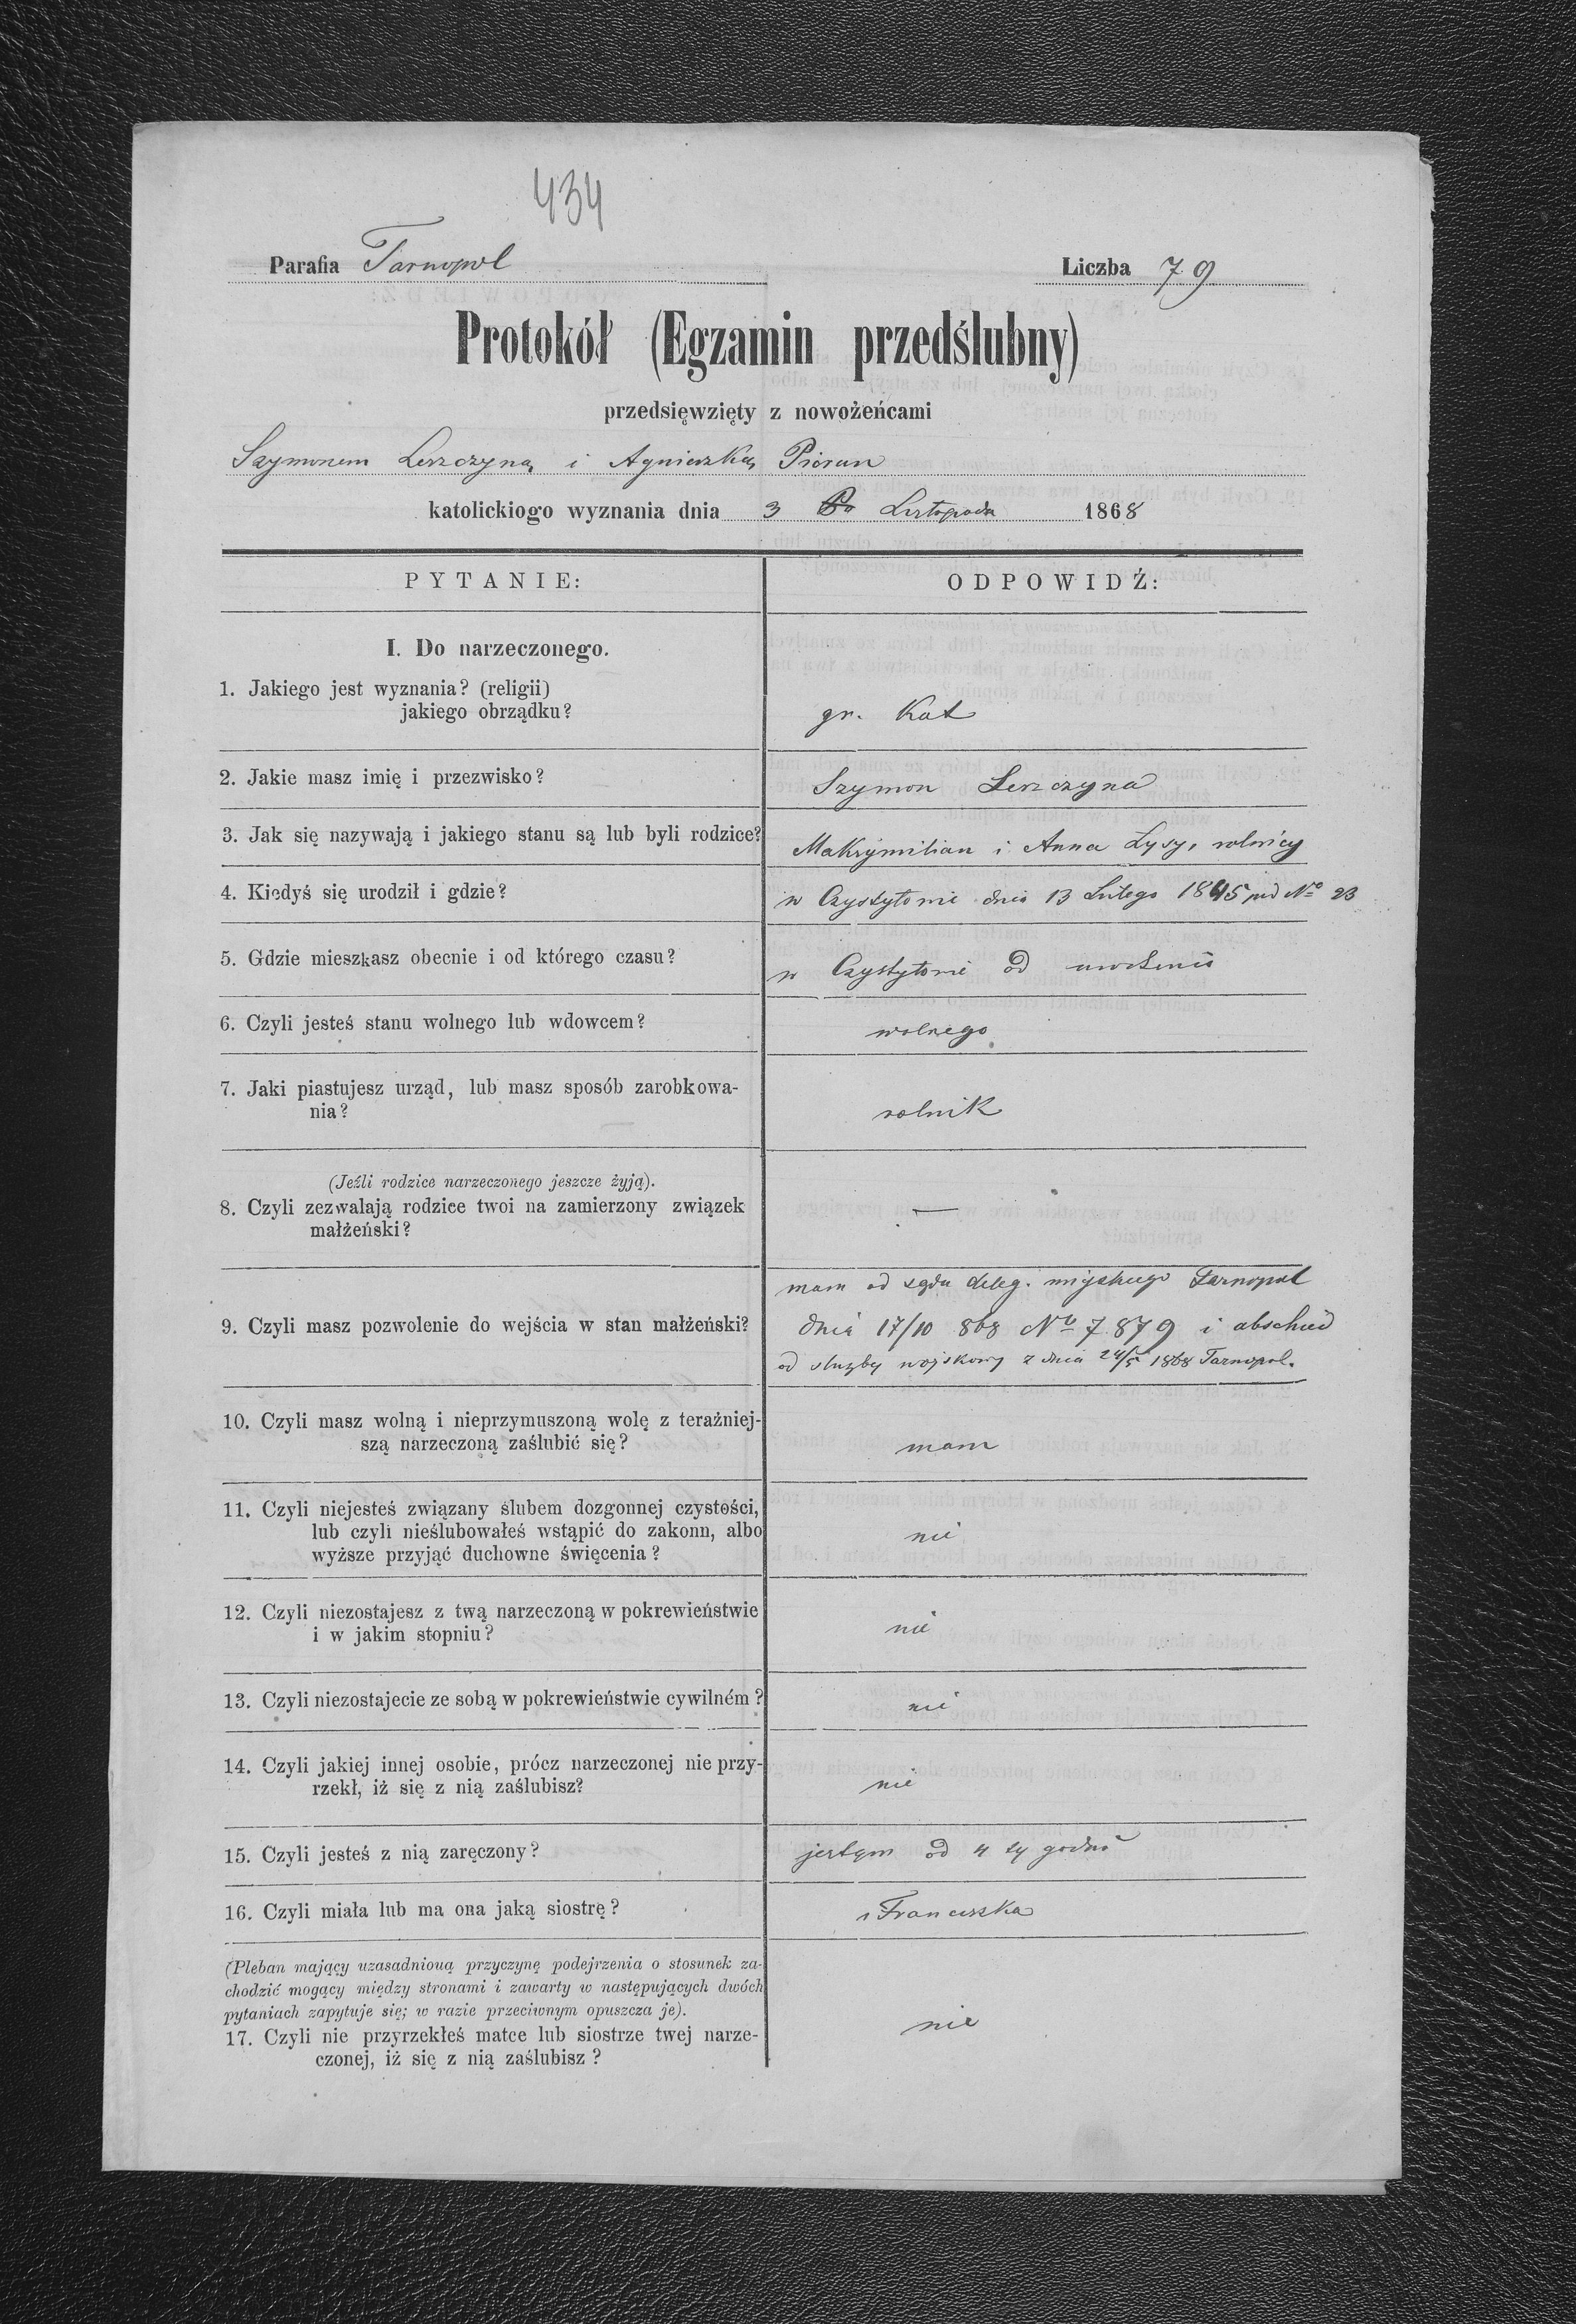 434
Parafia Tarnopol Liczba 79
Protokół (Egzamin przedślubny)
przedsięwzięty z nowożeńcami
Szymonem Leszczyną i Agnieszką Piorun
katolickiogo wyznania dnia 3 Listopada 1868
PYTANIE: ODPOWIDŹ:
I. Do narzeczonego.
1. Jakiego jest wyznania? (religii)
jakiego obrządku? gr. Kat
2. Jakie masz imię i przezwisko? Szymon Leszczyna
3. Jak się nazywają i jakiego stanu są lub byli rodzice? Maksymilian i Anna Łysy, rolnicy
4. Kiedyś się urodził i gdzie? w Czystyłowie dnia 13 Lutego 1845 pod No 23
5. Gdzie mieszkasz obecnie i od którego czasu? w Czystyłowie od
6. Czyli jesteś stanu wolnego lub wdowcem? wolnego
7. Jaki piastujesz urząd, lub masz sposób zarobkowa-
nia? rolnik
(Jeźli rodzice narzeczonego jeszcze żyją).
8. Czyli zezwalają rodzice twoi na zamierzony związek —
małżeński?
mam od sądu deleg. miejskiego Tarnopol
9. Czyli masz pozwolenie do wejścia w stan małżeński? dnia 17/10 868 No 7879 i abschied
od służby wojskowy z dnia 24/5 1868 Tarnopol.
10. Czyli masz wolną i nieprzymuszoną wolę z teraźniej-
szą narzeczoną zaślubić się? mam
11. Czyli niejesteś związany ślubem dozgonnej czystości,
lub czyli nieślubowałeś wstąpić do zakonn, albo nie
wyższe przyjąć duchowne święcenia?
12. Czyli niezostajesz z twą narzeczoną w pokrewieństwie
i w jakim stopniu? nie
13. Czyli niezostajecie ze sobą w pokrewieństwie cywilném? nie
14. Czyli jakiej innej osobie, prócz narzeczonej nie przy-
rzekł, iż się z nią zaślubisz? nie
15. Czyli jesteś z nią zaręczony? jestym od 4 tygodni
16. Czyli miała lub ma ona jaką siostrę? Franciszka
(Pleban mający uzasadniouą przyczynę podejrzenia o stosunek za-
chodzić mogący między stronami i zawarty w następujących dwóch
pytaniach zapytuje się; w razie przeciwnym opuszcza je).
17. Czyli nie przyrzekłeś matce lub siostrze twej narze- nie
czonej, iż się z nią zaślubisz?